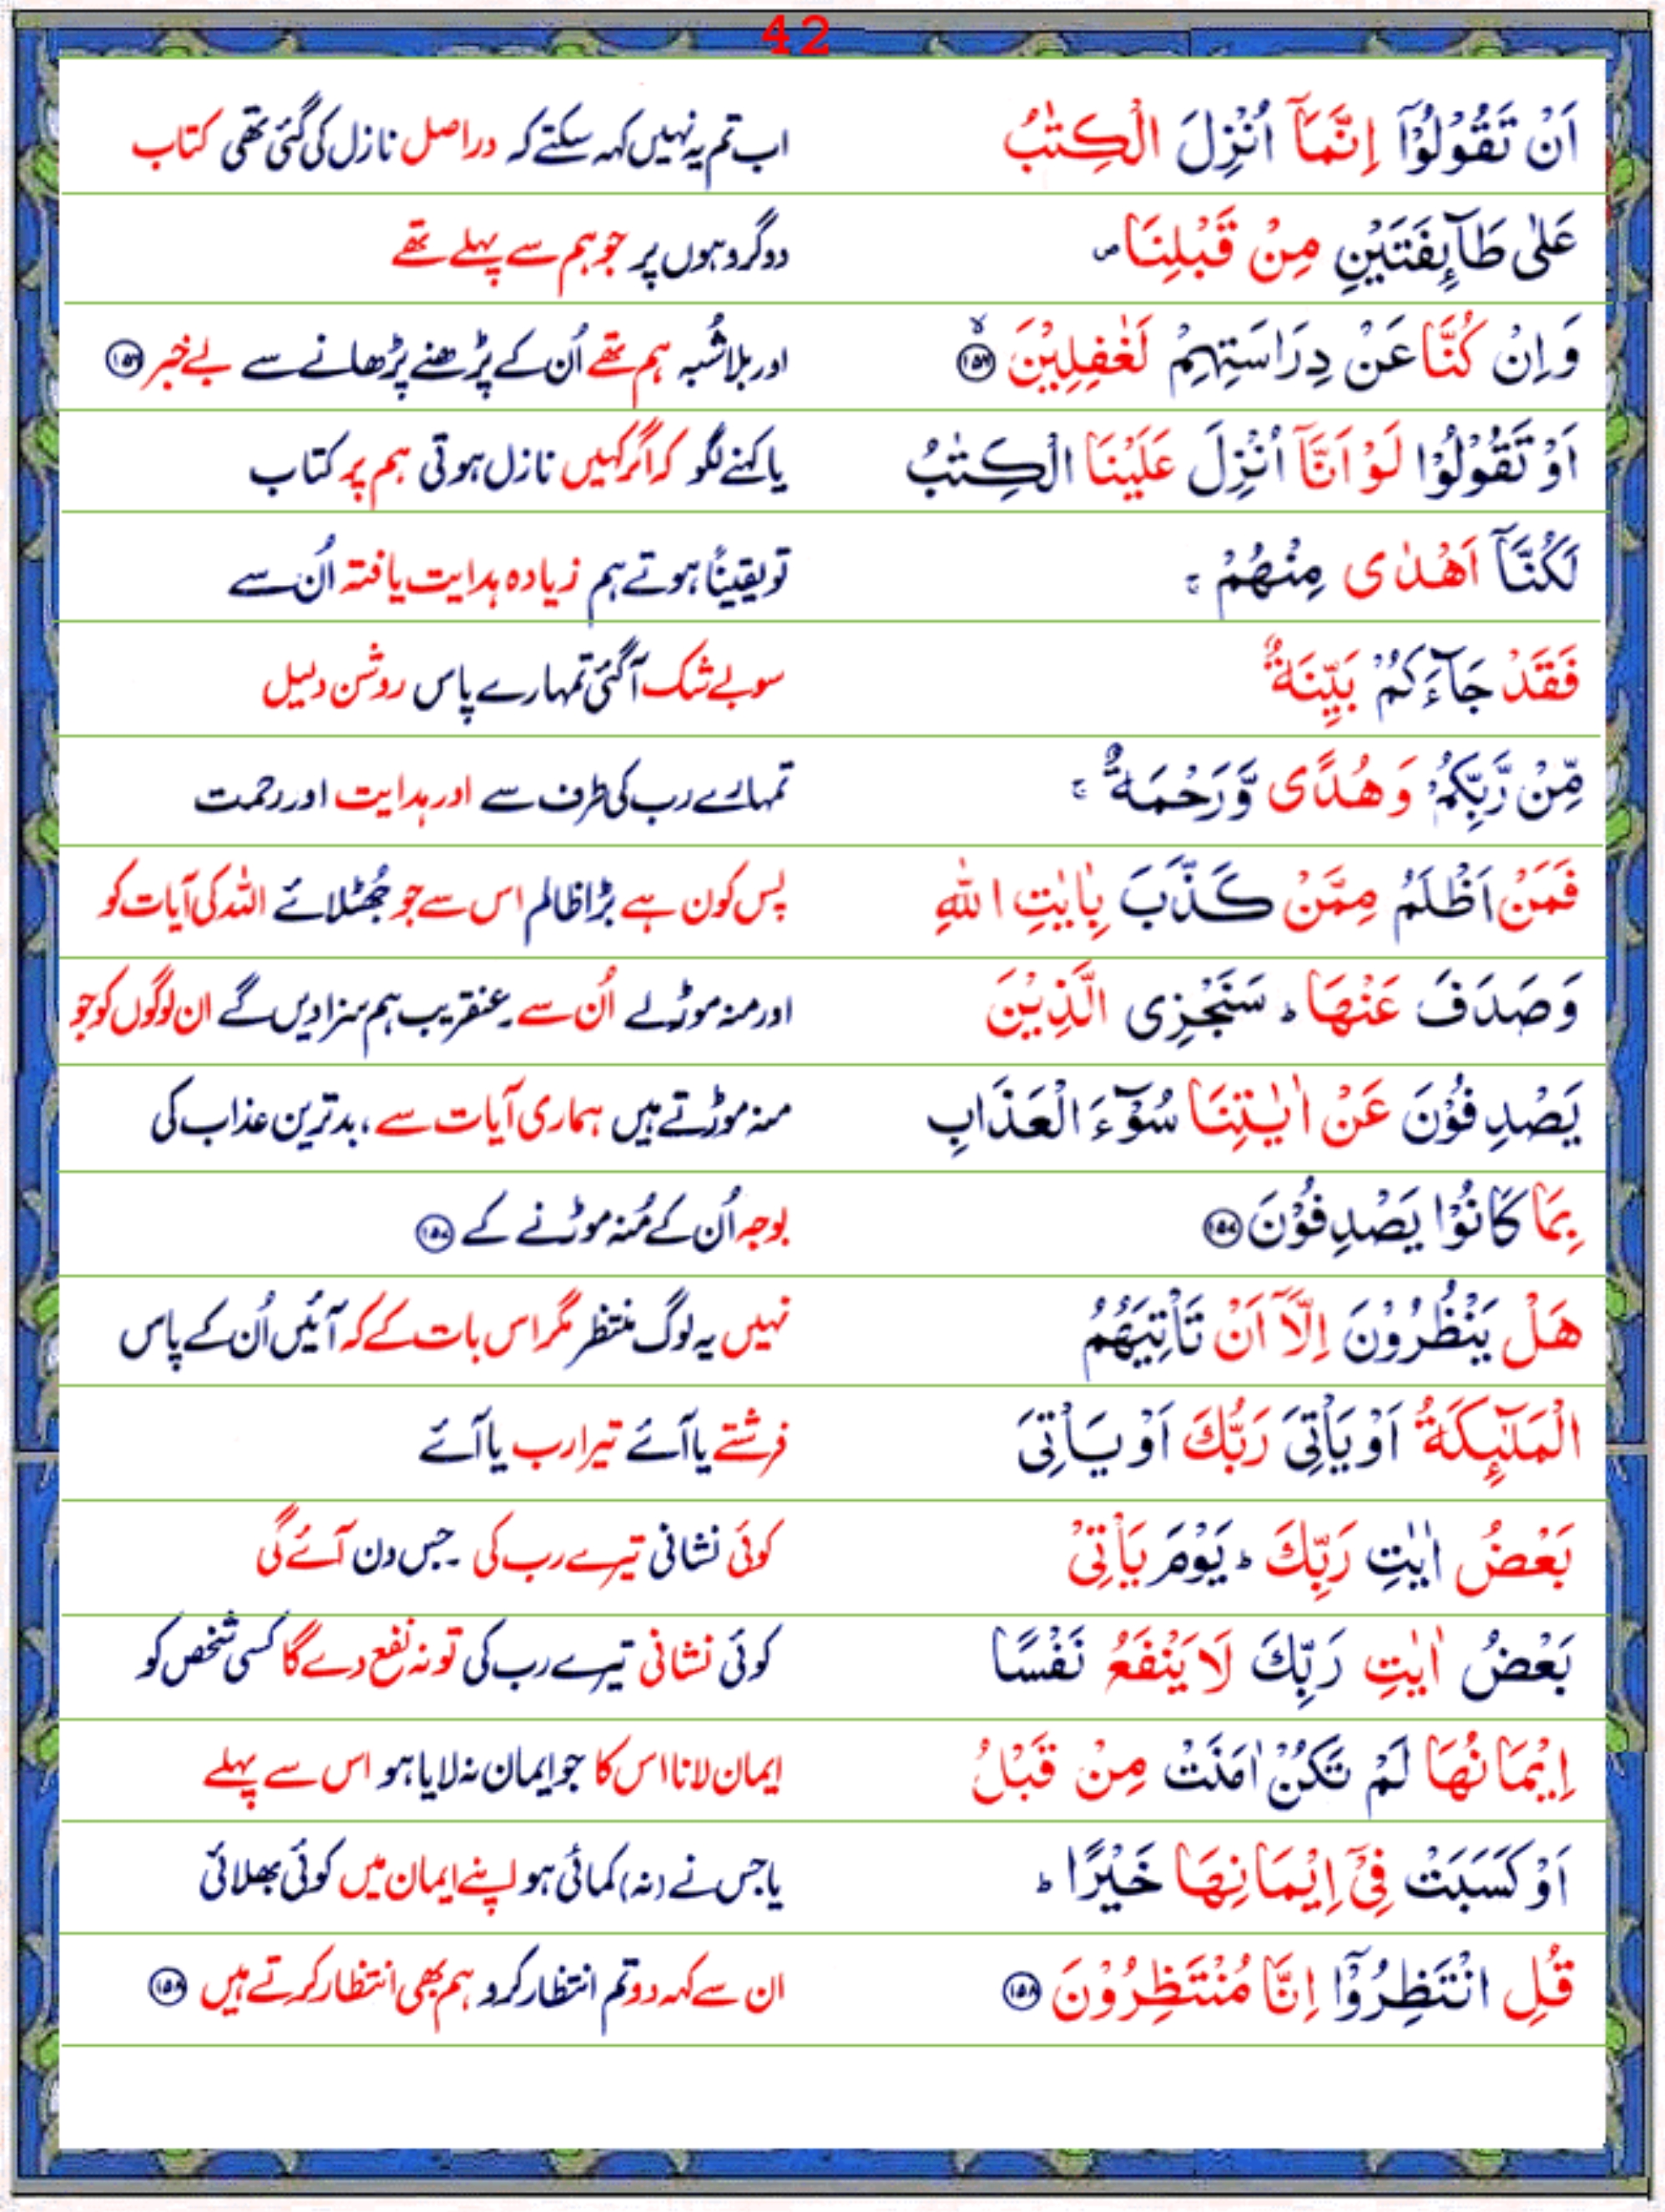 42
اَنْ تَقُوْلُوْۤا اِنَّمَاۤ اُنْزِلَ الْكِتٰبُ اب تم یہ نہیں کہہ سکتے کہ دراصل نازل کی گئی تھی کتاب
عَلٰى طَآىِٕفَتَيْنِ مِنْ قَبْلِنَا ۪ دو گروہوں پر جو ہم سے پہلے تھے
وَاِنْ كُنَّا عَنْ دِرَاسَتِهِمْ لَغٰفِلِيْنَ ۙ﴿۱۵۶﴾ اور بلاشُبہ ہم تھے اُن کے پڑھنے پڑھانے سے بے خبر ﴿۱۵۶﴾
اَوْ تَقُوْلُوْا لَوْ اَنَّاۤ اُنْزِلَ عَلَيْنَا الْكِتٰبُ یا کہنے لگو کہ اگر کہیں نازل ہوتی ہم پر کتاب
لَكُنَّاۤ اَهْدٰى مِنْهُمْ ۚ تو یقیناً ہوتے ہم زیادہ ہدایت یافتہ اُن سے
فَقَدْ جَآءَكُمْ بَيِّنَةٌ سو بے شک آگئی تمہارے پاس روشن دلیل
مِّنْ رَّبِّكُمْ وَهُدًى وَّرَحْمَةٌ ۚ تمہارے رب کی طرف سے اور ہدایت اور رحمت
فَمَنْ اَظْلَمُ مِمَّنْ كَذَّبَ بِاٰيٰتِ اللّٰهِ پس کون ہے بڑا ظالم اس سے جو جُھٹلائے اللہ کی آیات کو
وَصَدَفَ عَنْهَا ؕ سَنَجْزِى الَّذِيْنَ اور منہ موڑلے اُن سے۔ عنقریب ہم سزا دیں گے ان لوگوں کو جو
يَصْدِفُوْنَ عَنْ اٰيٰتِنَا سُوْٓءَ الْعَذَابِ منہ موڑتے ہیں ہماری آیات سے، بدترین عذاب کی
بِمَا كَانُوْا يَصْدِفُوْنَ ﴿۱۵۷﴾ بوجہ اُن کے مُنہ موڑنے کے ﴿۱۵۷﴾
هَلْ يَنْظُرُوْنَ اِلَّاۤ اَنْ تَاْتِيَهُمُ نہیں یہ لوگ منتظر مگر اس بات کے کہ آئیں اُن کے پاس
الْمَلٰٓىِٕكَةُ اَوْ يَاْتِىَ رَبُّكَ اَوْ يَاْتِىَ فرشتے یا آئے تیرا رب یا آئے
بَعْضُ اٰيٰتِ رَبِّكَ ؕ يَوْمَ يَاْتِىْ کوئی نشانی تیرے رب کی۔ جس دن آئے گی
بَعْضُ اٰيٰتِ رَبِّكَ لَا يَنْفَعُ نَفْسًا کوئی نشانی تیرے رب کی تو نہ نفع دے گا کسی شخص کو
اِيْمَانُهَا لَمْ تَكُنْ اٰمَنَتْ مِنْ قَبْلُ ایمان لانا اس کا جو ایمان نہ لایا ہو اس سے پہلے
اَوْ كَسَبَتْ فِىْۤ اِيْمَانِهَا خَيْرًا ؕ یا جس نے (نہ) کمائی ہو اپنے ایمان میں کوئی بھلائی
قُلِ انْتَظِرُوْۤا اِنَّا مُنْتَظِرُوْنَ ﴿۱۵۸﴾ ان سے کہہ دو تم انتظار کرو ہم بھی انتظار کرتے ہیں ﴿۱۵۸﴾